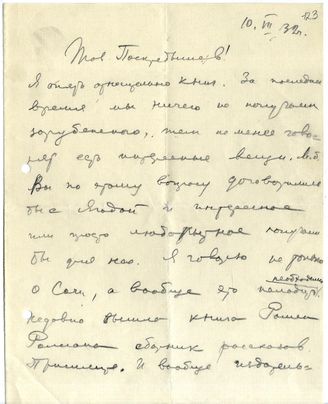 123
10. VII 32 г.
Тов. Поскребышев!
Я опять относительно книг. За последнее
время мы ничего не получали
зарубежного, тем не менее гово-
рят есть интересные вещи. М.б.
Вы по этому вопросу договорились
бы с Ягодой и интересное
или просто любопытное получали
бы для нас. Я говорю не только
о Сочи, а вообще это необходимо.
Недавно вышла книга Ромен
Роллана сборник рассказов.
Пришлите. И вообще издатель-